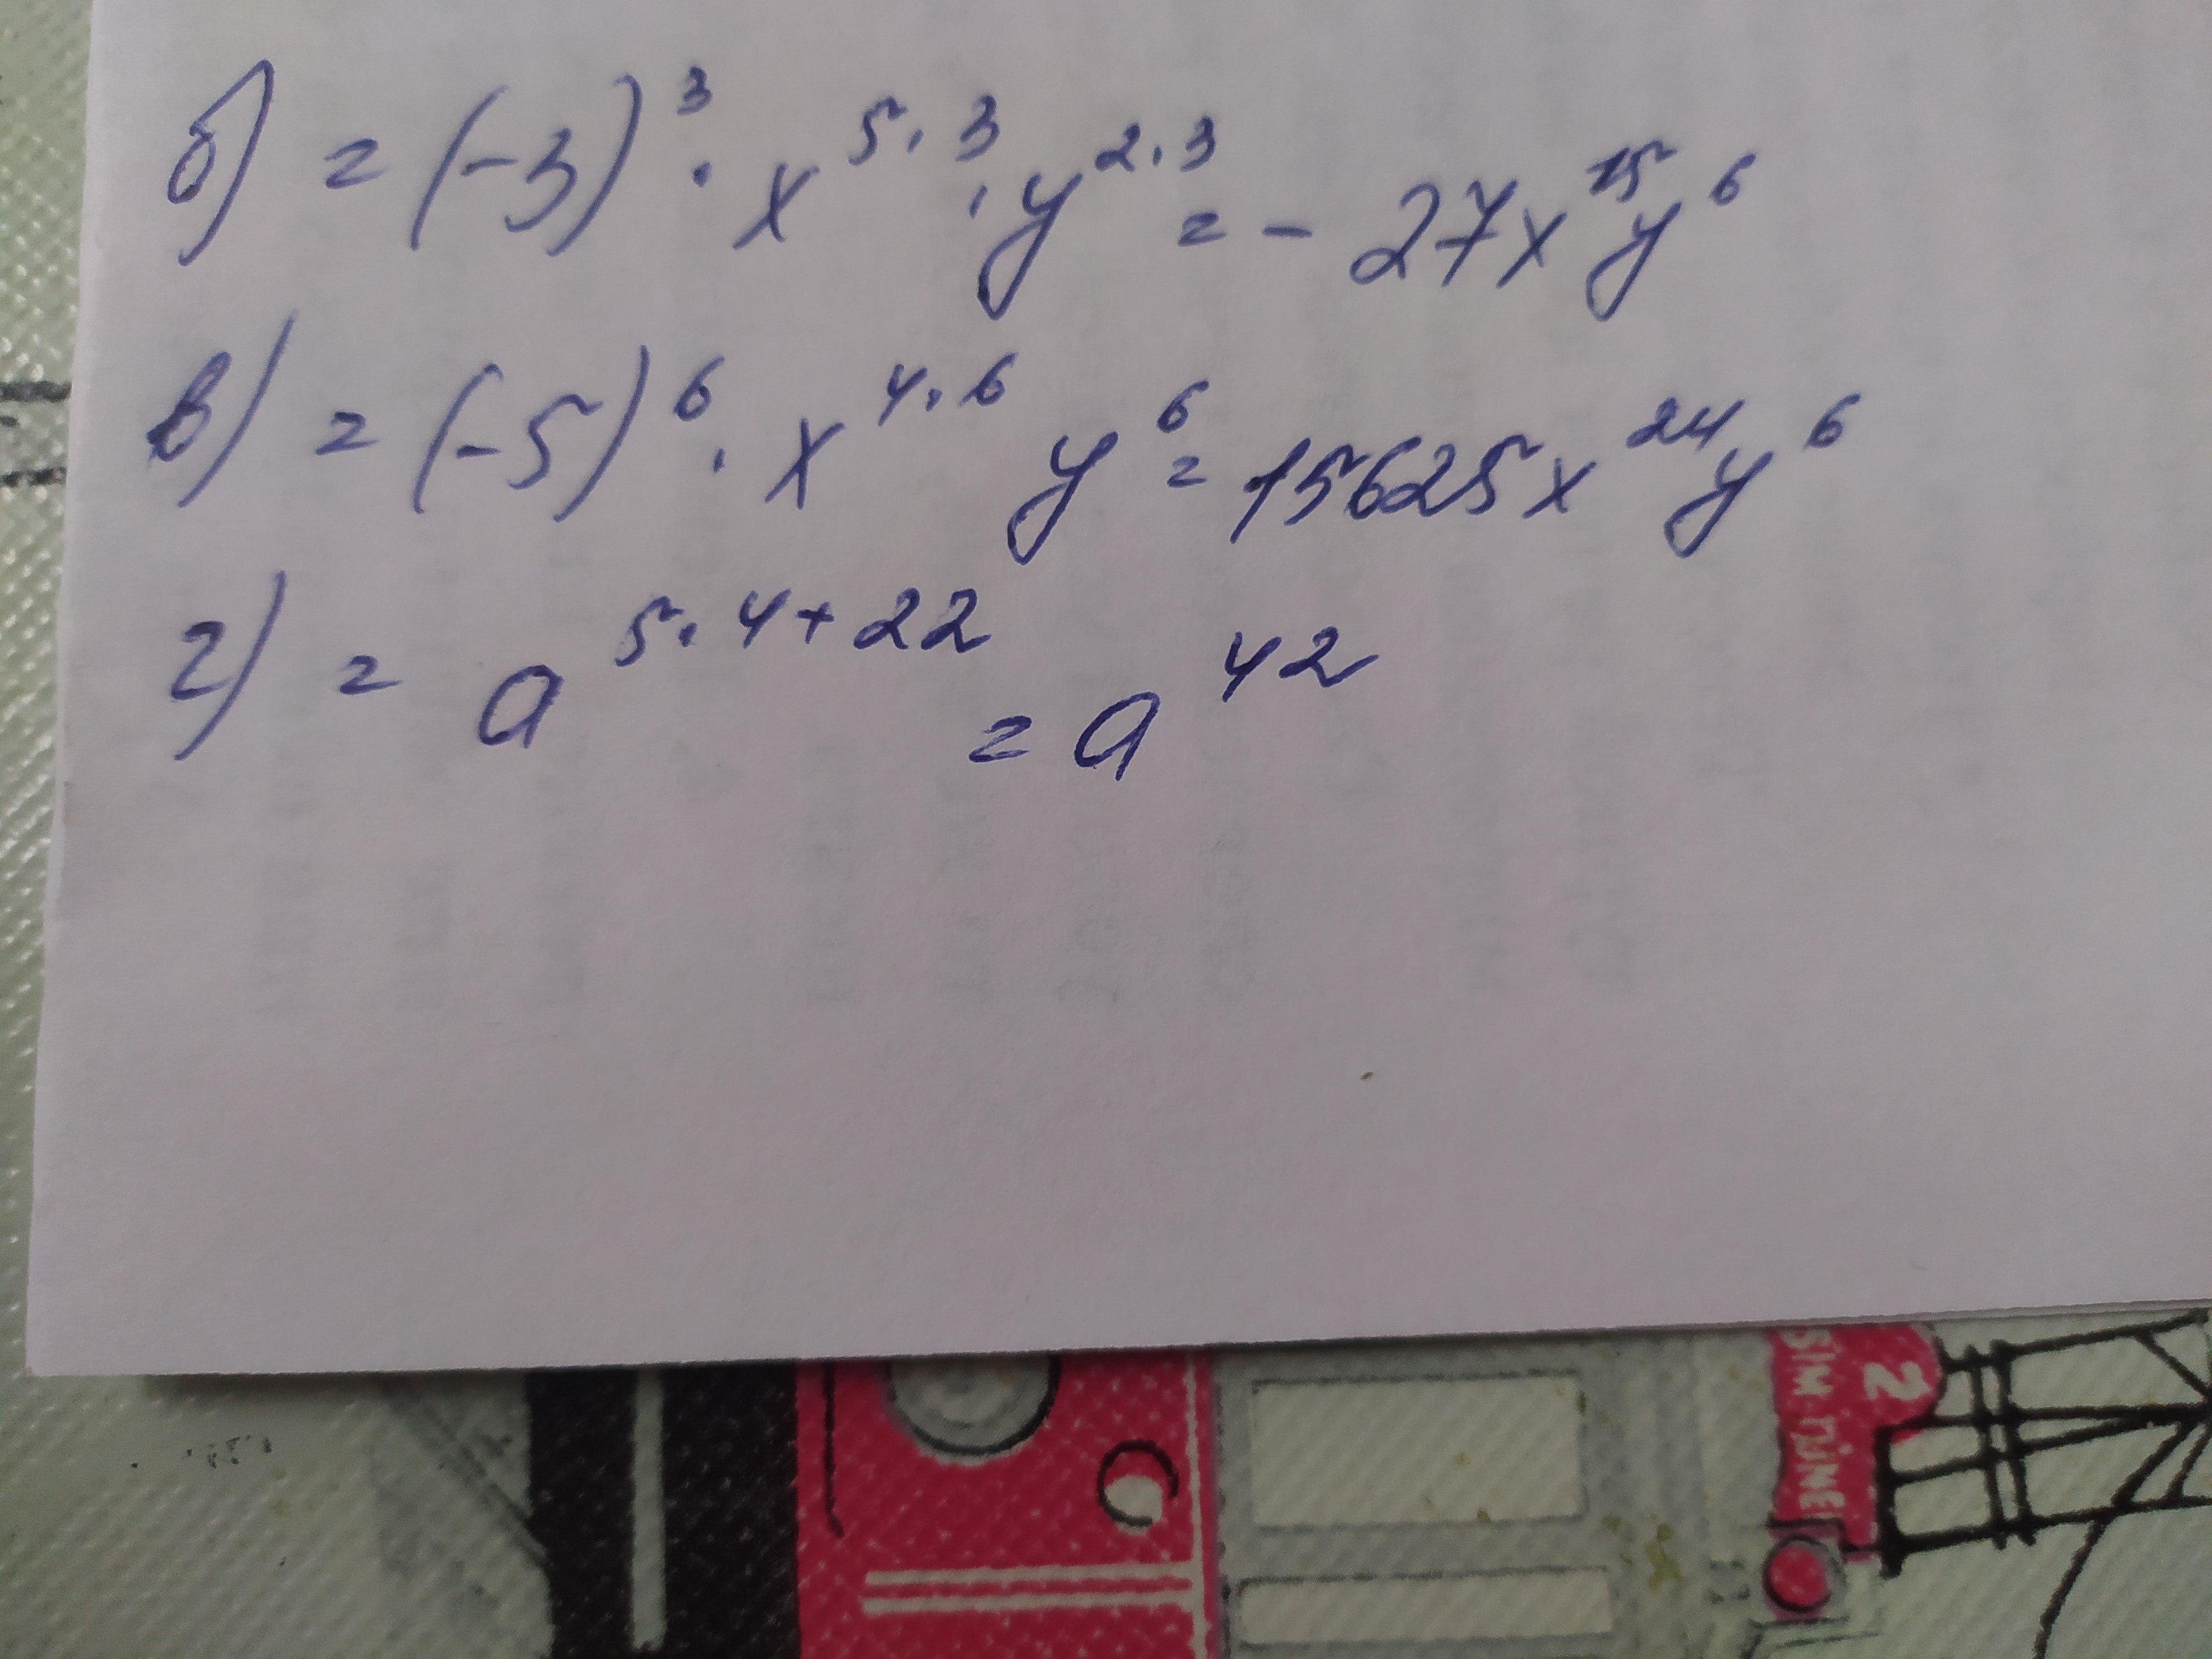 б) = (-3)³ · x⁵·³ · y²·³ = - 27x¹⁵y⁶
в) = (-5)⁶ · x⁴·⁶ y⁶ = 15625x²⁴y⁶
г) = a⁵·⁴⁺²² = a⁴²
2
SIM-TÜNE